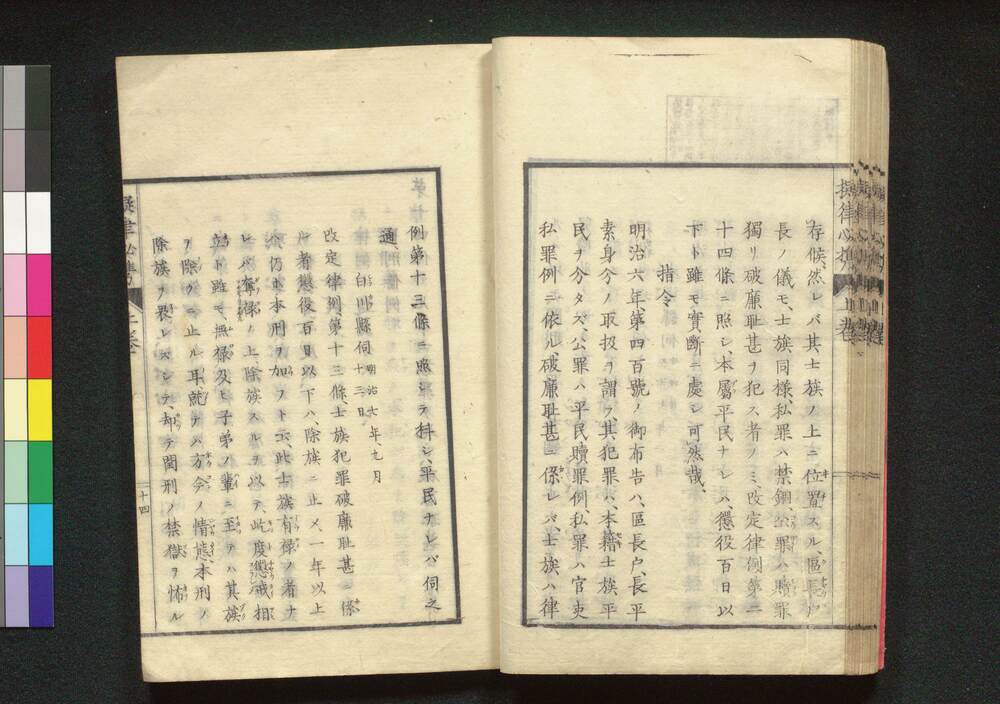 存候然レバ其士族ノ上ニ位置スル、區長戸
長ノ儀モ、士族同樣、私罪ハ禁錮、公罪ハ贖罪
獨リ破廉耻甚ヲ犯ス者ノミ、改定律例第二
十四條ニ照シ、本屬平民ナレハ、懲役百日以
下ト雖モ實斷ニ處シ可然哉、
指令
明治六年、第四百號ノ御布告ハ、區長戸、長平
素身分ノ取扱ヲ謂フ、其犯罪ハ、本籍士族平
民ヲ分タズ、公罪ハ平民贖罪例、私罪ハ官吏
私罪例ニ依ル、破廉耻甚ニ係レバ、士族ハ律
例第十三條ニ照シテ科シ、平民ナレバ伺之
通、
白川縣伺 明治六年、九月十三日、
改定律例、第十三條、士族犯罪破廉耻甚ニ係
ル者懲役百日以下ハ、除族ニ止メ、一年以上
ハ仍ホ本刑ヲ加フト云、此士族有祿ノ者ナ
レバ、奪祿ノ上、除族スルヲ以テ、此度懲戒相
立ト雖モ、無祿及ヒ子弟ノ輩ニ至テハ其族
ヲ除クニ止ル耳、就テハ方今ノ情態、本刑ノ
除族ヲ畏レズシテ、却テ閏刑ノ禁獄ヲ怖ル
擬律必携
上卷
十四